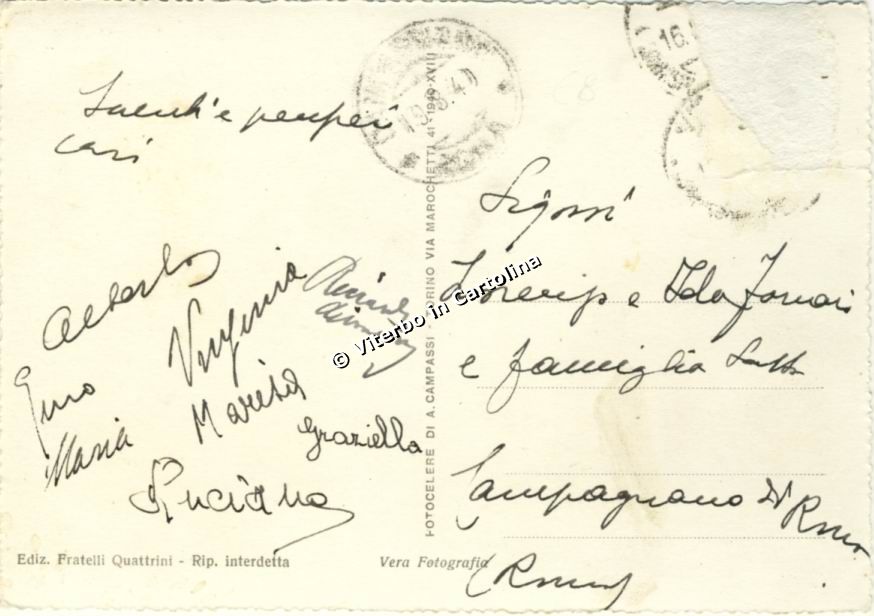 cari
Alberto
Gino Virginia
Maria Marisa
Graziella
Luciana
Ediz. Fratelli Quattrini - Rip. interdetta
Vera Fotografia
FOTOCELERE DI A. CAMPASSI TORINO VIA MAROCHETTI 41 - 1940-XVIII
© Viterbo in Cartolina
16.
Sigori
e Ida Fornari
e famiglia
Campagnano di Roma
(Roma)